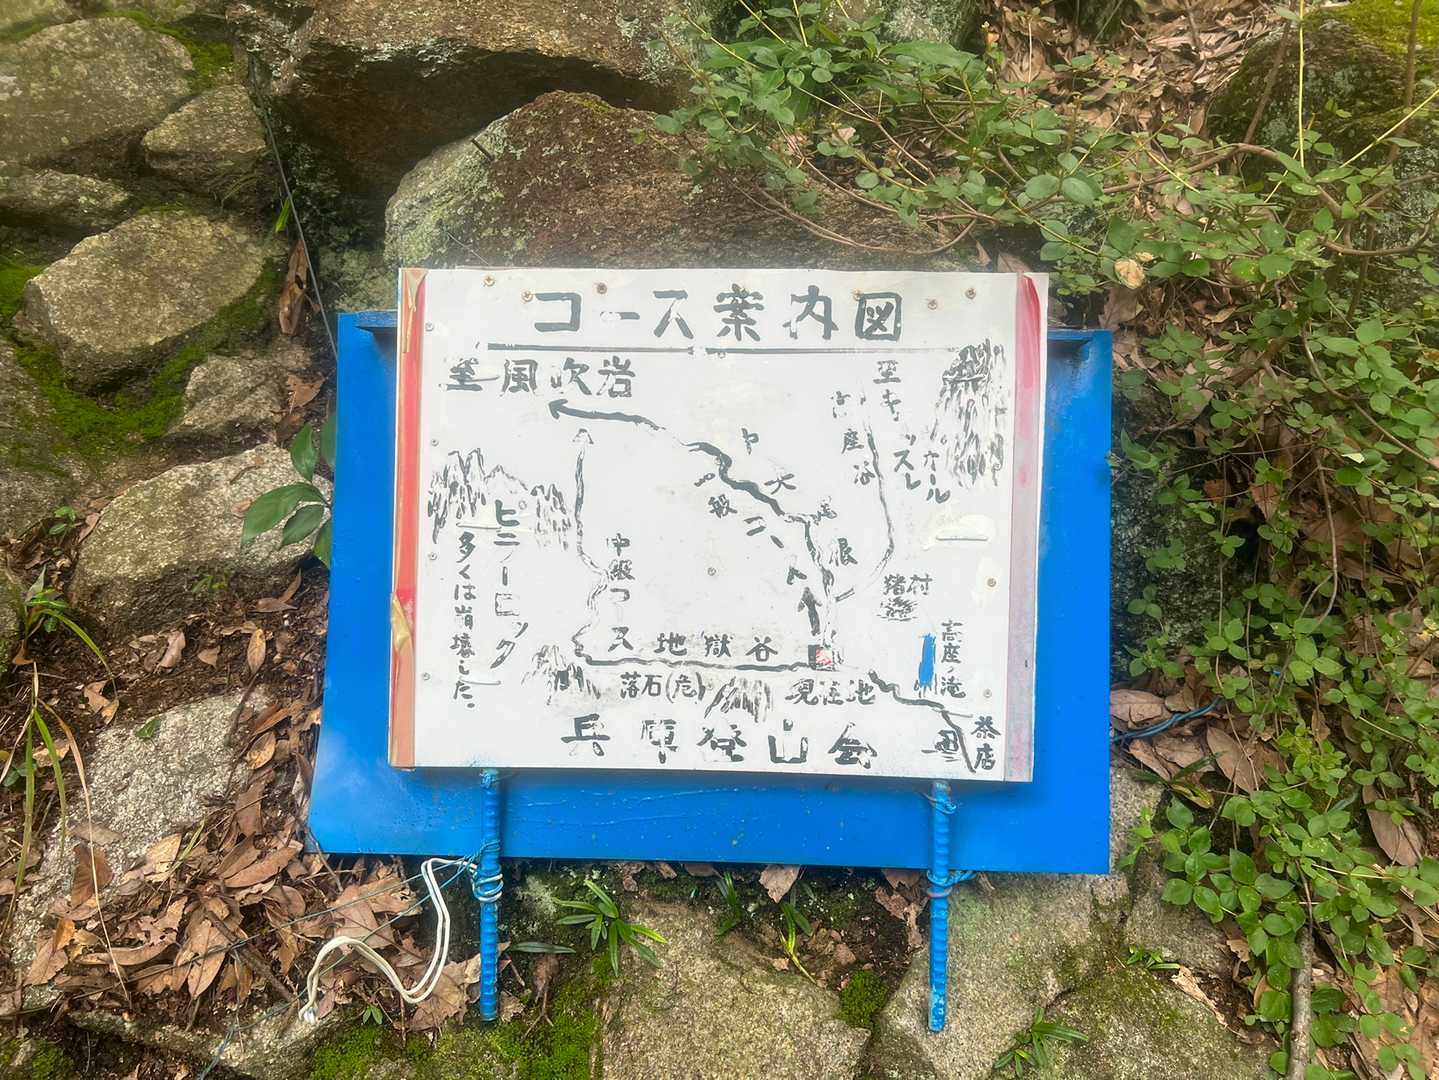 コース案内図
至風吹岩
至キャッスルウォール
高座谷
中央尾根
一般コース
ピラーロック
多くは崩壊した
中級コース
猪村
地獄谷
高座ノ滝
落石(危)
現在地
茶店
兵庫登山会